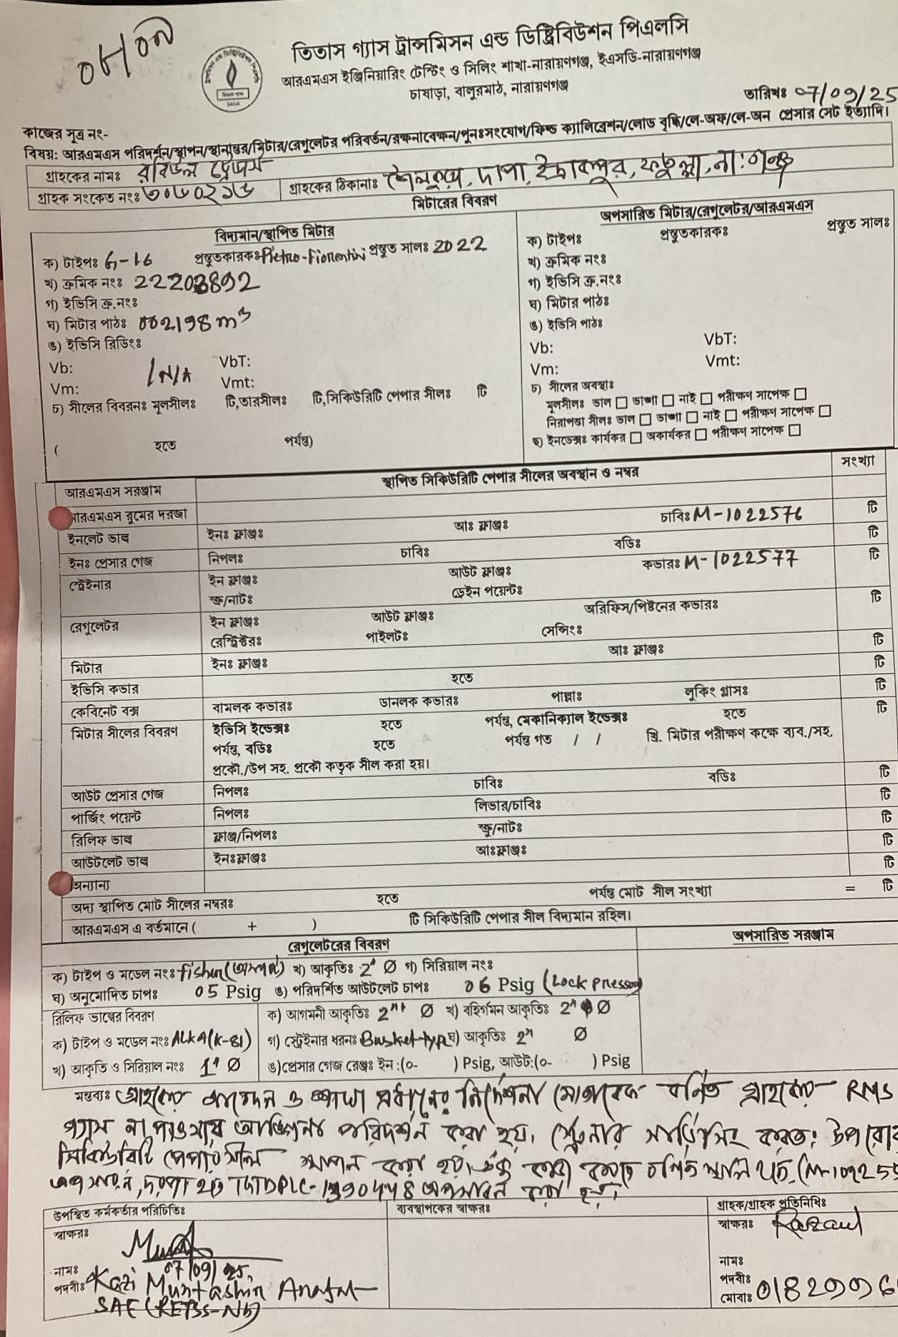 তিতাস গ্যাস ট্রান্সমিসন এন্ড ডিষ্ট্রিবিউশন পিএলসি
আরএমএস ইঞ্জিনিয়ারিং টেস্টিং ও সিলিং শাখা-নারায়ণগঞ্জ, ইএসডি-নারায়ণগঞ্জ
চাষাড়া, বালুরমাঠ, নারায়ণগঞ্জ
তারিখঃ 07/09/25
কাজের সূত্র নং-
বিষয়: আরএমএস পরিদর্শন/স্থাপন/স্থানান্তর/মিটার/রেগুলেটর পরিবর্তন/রক্ষনাবেক্ষন/পুনঃসংযোগ/ফিল্ড ক্যালিব্রেশন/লোড বৃদ্ধি/লে-অফ/লে-অন প্রেসার সেট ইত্যাদি।
গ্রাহকের নামঃ
গ্রাহকের ঠিকানাঃ
গ্রাহক সংকেত নংঃ
মিটারের বিবরণ
বিদ্যমান/স্থাপিত মিটার
ক) টাইপঃ G-16 প্রস্তুতকারকঃ Pietro-Fiorentini প্রস্তুত সালঃ 2022
খ) ক্রমিক নংঃ 22203892
গ) ইভিসি ক্র.নংঃ
ঘ) মিটার পাঠঃ 002198 m³
ঙ) ইভিসি রিডিংঃ
Vb: VbT:
Vm: N/A Vmt:
চ) সীলের বিবরনঃ মূলসীলঃ টি,তারসীলঃ টি,সিকিউরিটি পেপার সীলঃ টি
( হতে পর্যন্ত)
অপসারিত মিটার/রেগুলেটর/আরএমএস
ক) টাইপঃ প্রস্তুতকারকঃ প্রস্তুত সালঃ
খ) ক্রমিক নংঃ
গ) ইভিসি ক্র.নংঃ
ঘ) মিটার পাঠঃ
ঙ) ইভিসি পাঠঃ
Vb: VbT:
Vm: Vmt:
চ) সীলের অবস্থাঃ
মূলসীলঃ ভাল ভাঙ্গা নাই পরীক্ষণ সাপেক্ষ
নিরাপত্তা সীলঃ ভাল ভাঙ্গা নাই পরীক্ষণ সাপেক্ষ
ছ) ইনডেক্সঃ কার্যকর অকার্যকর পরীক্ষণ সাপেক্ষ
স্থাপিত সিকিউরিটি পেপার সীলের অবস্থান ও নম্বর সংখ্যা
আরএমএস সরঞ্জাম
আরএমএস রুমের দরজা চাবিঃ M-1022576 টি
ইনলেট ভাল্ব ইনঃ ফ্লাঞ্জঃ আঃ ফ্লাঞ্জঃ টি
ইনঃ প্রেসার গেজ নিপলঃ চাবিঃ বডিঃ টি
স্ট্রেইনার ইন ফ্লাঞ্জঃ আউট ফ্লাঞ্জঃ কভারঃ M-1022577
স্ক্রু/নাটঃ ড্রেইন পয়েন্টঃ
রেগুলেটর ইন ফ্লাঞ্জঃ আউট ফ্লাঞ্জঃ অরিফিস/পিষ্টনের কভারঃ টি
রেস্ট্রিক্টরঃ পাইলটঃ সেন্সিংঃ
মিটার ইনঃ ফ্লাঞ্জঃ আঃ ফ্লাঞ্জঃ টি
ইভিসি কভার হতে টি
কেবিনেট বক্স বামলক কভারঃ ডানলক কভারঃ পাল্লাঃ লুকিং গ্লাসঃ টি
মিটার সীলের বিবরণ ইভিসি ইন্ডেক্সঃ হতে পর্যন্ত, মেকানিক্যাল ইন্ডেক্সঃ হতে টি
পর্যন্ত, বডিঃ হতে পর্যন্ত গত / / খ্রি. মিটার পরীক্ষণ কক্ষে ব্যব./সহ.
প্রকৌ./উপ সহ. প্রকৌ কতৃক সীল করা হয়।
আউট প্রেসার গেজ নিপলঃ চাবিঃ বডিঃ টি
পার্জিং পয়েন্ট নিপলঃ লিভার/চাবিঃ টি
রিলিফ ভাল্ব ফ্লাঞ্জ/নিপলঃ স্ক্রু/নাটঃ টি
আউটলেট ভাল্ব ইনঃফ্লাঞ্জঃ আঃফ্লাঞ্জঃ টি
অন্যান্য টি
অদ্য স্থাপিত মোট সীলের নম্বরঃ হতে পর্যন্ত মোট সীল সংখ্যা = টি
আরএমএস এ বর্তমানে ( + ) টি সিকিউরিটি পেপার সীল বিদ্যমান রহিল।
রেগুলেটরের বিবরণ অপসারিত সরঞ্জাম
ক) টাইপ ও মডেল নংঃ খ) আকৃতিঃ 2" Ø গ) সিরিয়াল নংঃ
ঘ) অনুমোদিত চাপঃ 05 Psig ঙ) পরিদর্শিত আউটলেট চাপঃ 06 Psig (Lock Pressure)
রিলিফ ভাল্বের বিবরণ ক) আগমনী আকৃতিঃ 2" Ø খ) বহির্গমন আকৃতিঃ 2" Ø
ক) টাইপ ও মডেল নংঃ গ) স্ট্রেইনার ধরনঃ Basket type ঘ) আকৃতিঃ 2" Ø
খ) আকৃতি ও সিরিয়াল নংঃ 1" Ø ঙ)প্রেসার গেজ রেঞ্জঃ ইন :(০- ) Psig, আউট:(০- ) Psig
মন্তব্যঃ গ্রাহকের আবেদন ও শাখা প্রধানের নির্দেশনা মোতাবেক বর্ণিত গ্রাহকের RMS
গ্যাস না পাওয়ায় আঙ্গিনা পরিদর্শন করা হয়।
উপস্থিত কর্মকর্তার পরিচিতিঃ ব্যবস্থাপকের স্বাক্ষরঃ গ্রাহক/গ্রাহক প্রতিনিধিঃ
স্বাক্ষরঃ স্বাক্ষরঃ
07/09/25
নামঃ Kazi নামঃ
পদবীঃ পদবীঃ
মোবাঃ